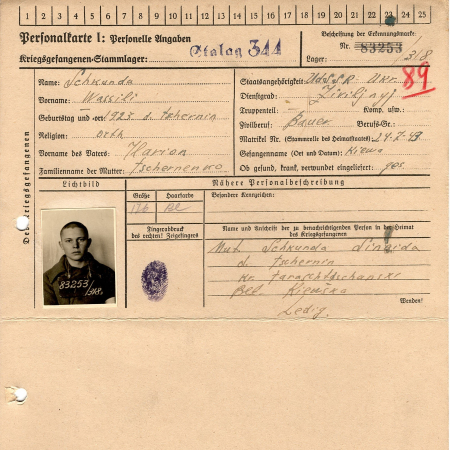 1 2 3 4 5 6 7 8 9 10 11 12 13 14 15 16 17 18 19 20 21 22 23 24 25
Personalkarte I: Personelle Angaben
Kriegsgefangenen-Stammlager: Stalag 344
Beschriftung der Erkennungsmarke:
Nr. 83253
Lager: 318
89
Des Kriegsgefangenen
Name: Schkunda
Vorname: Wassili
Geburtstag und -ort: 1925 d. Tschernin
Religion: Orth
Vorname des Vaters: Harion
Familienname der Mutter: Tschernenko
Staatsangehörigkeit: UdSSR Ukr.
Dienstgrad:
Truppenteil: Komp. usw.:
Zivilberuf: Bauer Berufs-Gr.:
Matrikel Nr. (Stammrolle des Heimatstaates): 24.7.43
Gefangennahme (Ort und Datum): Kiewa
Ob gesund, krank, verwundet eingeliefert: ges.
Lichtbild
Nähere Personalbeschreibung
Größe Haarfarbe
Bl
Besondere Kennzeichen:
Fingerabdruck
des rechten! Zeigefingers
Name und Anschrift der zu benachrichtigenden Person in der Heimat
des Kriegsgefangenen
Mut. Schkunda Sinaida
d. Tschernin
Kr. Taraschtschanski
Kiewska
Ledig.
Wenden!
83253
318.